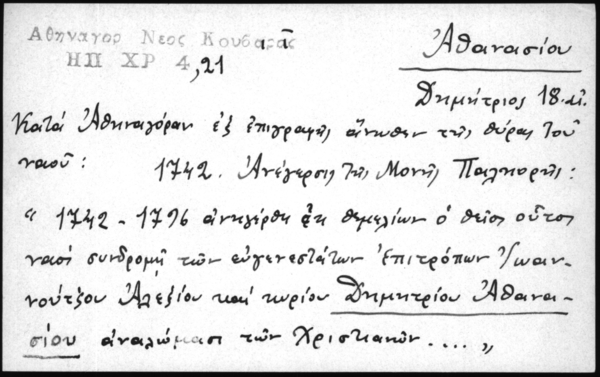 Αθηναγορ Νεος Κουβαρᾶς
ΗΠ ΧΡ 4,21
Ἀθανασίου
Δημήτριος 18. αἰ.
Κατά Ἀθηναγόραν ἐξ ἐπιγραφῆς ἄνωθεν τῆς θύρας τοῦ
ναοῦ: 1742. Ἀνέγερσις τῆς Μονῆς Παληορῆς:
" 1742 - 1796 ἀνηγέρθη ἐκ θεμελίων ὁ θεῖος οὗτος
ναός συνδρομῇ τῶν εὐγενεστάτων Ἐπιτρόπων Ἰωαν-
νούτζου Ἀλεξίου καί κυρίου Δημητρίου Ἀθανα-
σίου ἀναλώμασι τῶν Χριστιανῶν .... "